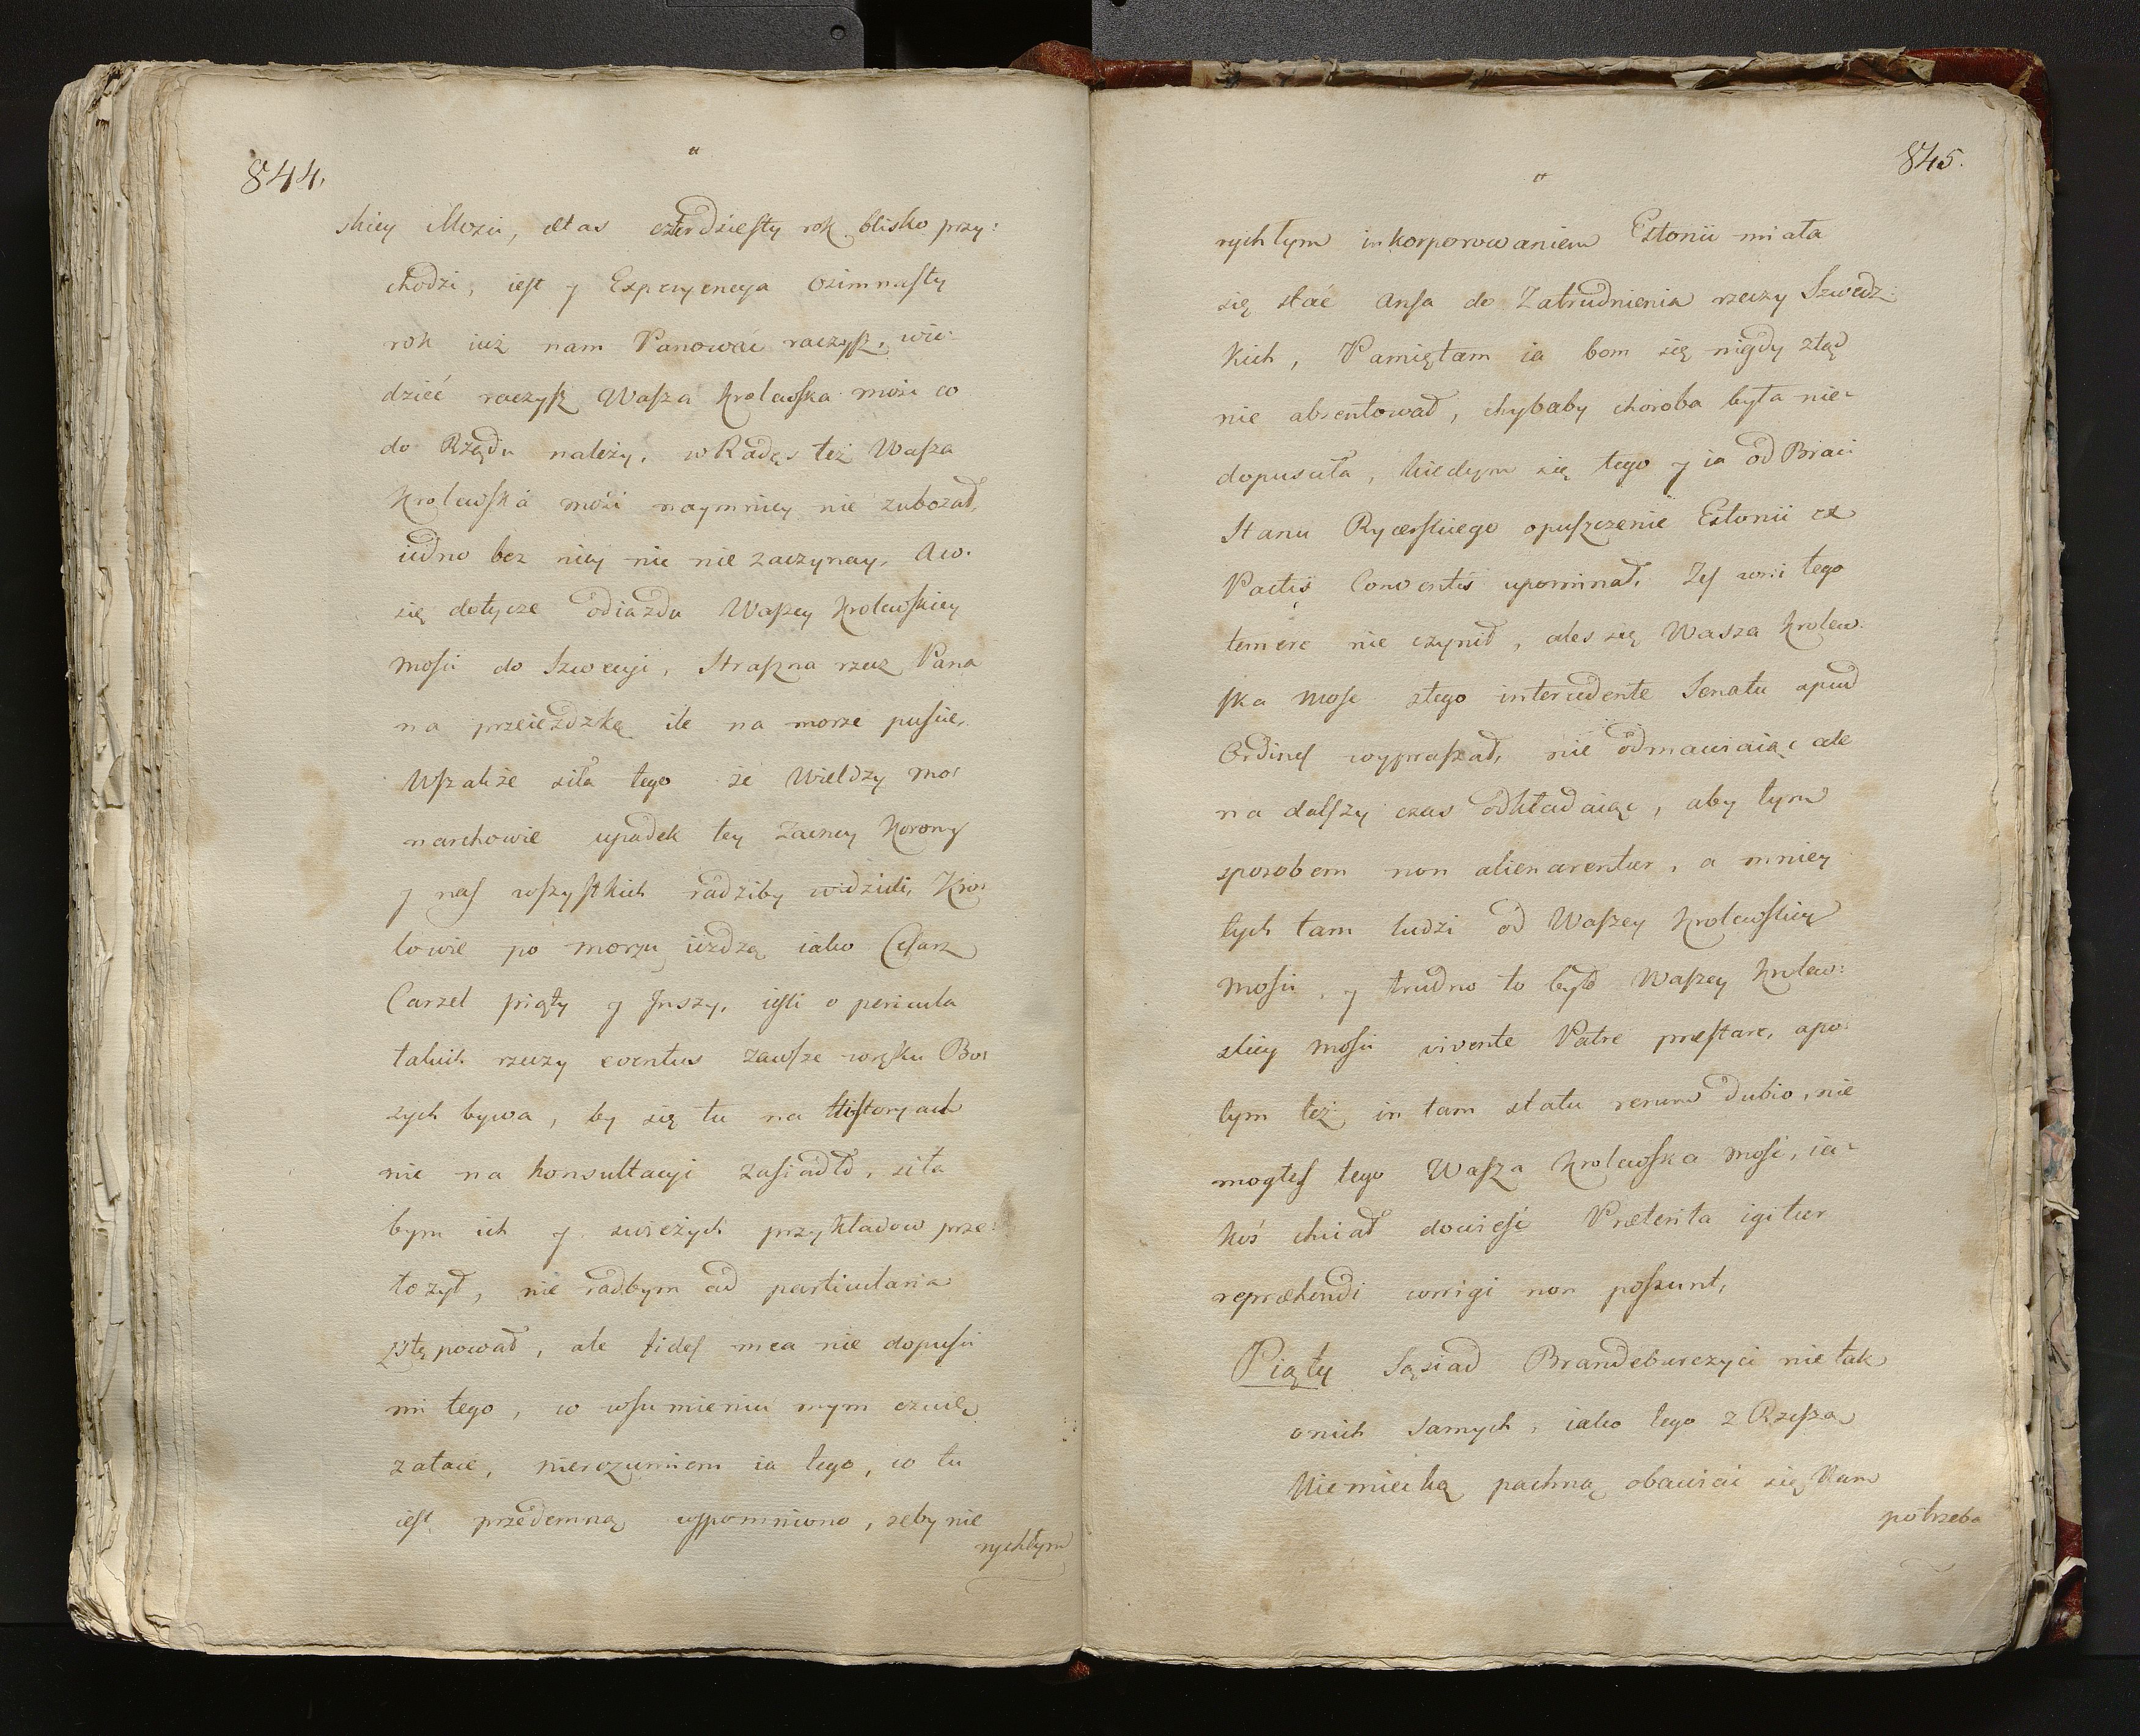 844.
skiey Mozci, ætas czterdziesty rok blisko przy:
chodzi, iest y Experyencya osimnasty
rok iuż nam Panować raczysz, wie:
dzieć raczysz Wasza Krolewska mosc co
do Rządu należy, w Radęs też Wasza
Krolewska mosci naymniey nie zubożał,
iedno bez niey nic nie zaczynay, A co
się dotycze odiazdu Waszey Krolewskiey
Mosci do Szwecyi, Straszna rzecz Pana
na przeieżdzkę ile na morze puscic,
Wszakże siła tego że Wieldzy mo:
narchowie upadek tey Zacney Korony
y nas wszystkich radziby widzieli, Kro:
lowie po morzu iezdzą iako Cesarz
Carzel piąty y Jnszy, iesli o pericula
takich rzeczy eventus zawsze w ręku Bo:
zych bywa, by się tu na Historyach
nie na konsultacyi zasiadło, siła
bym ich y swieżych przykładow prze:
łozył, nie radbym ad particularia
zstępował, ale fides mea nie dopusci
mi tego, co w sumieniu mym czuię
zataić, nierozumiem ia tego, co tu
iest przedemną wspomniono, żeby nie
rychłym
845.
rychłym inkorporowaniem Estonii miała
się stać ansa do Zatrudnienia rzeczy Szwedz:
kich, Pamiętam ia bom się nigdy ztąd
nie absentował, chybaby choroba była nie:
dopusciła, kiedym się tego y ia od Braci
Stanu Rycerskiego opuszczenie Estonii ex
Pactis Conventis upominał, Zes w ni tego
temere nie czynił, ales się Wasza Krolew:
ska Mosc z tego intercedente Senatu apud
Ordines wypraszał, nie odmawiaiąc ale
na dalszy czas odkładaiąc, aby tym
sposobem non alienarentur, a mniey
tych tam ludzi od Waszey Krolewskiey
Mosci, y trudno to było Waszey Krolew:
skiey Mosci vivente Patre præstare, a po:
tym też in tam statu rerum dubio, nie
mogłes tego Wasza Krolewska Mosc, ia:
koś chciał dowiesc Præterita igitur
repræhendi corrigi non possunt,
Piąty Sąsiad Brandeburczyci nie tak
o nich samych, iako tego z Rzeszą
Niemiecką pachną obawiać się Nam
potrzeba